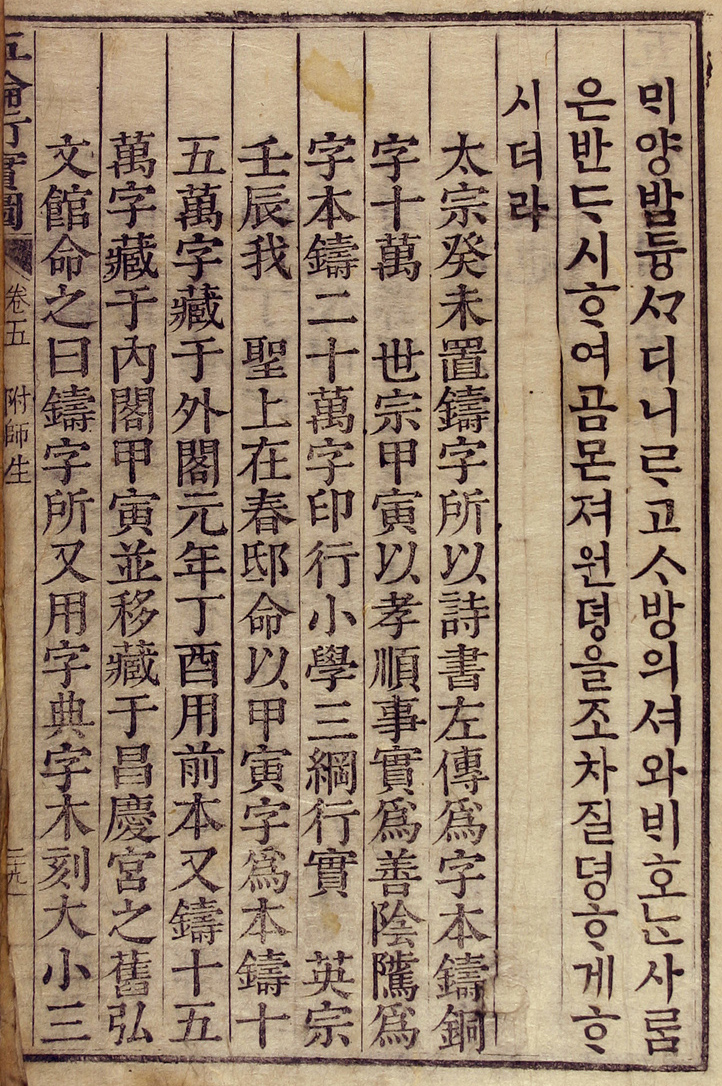 ᄆᆡ양밤듕ᄭᆞ디니ᄅᆞ고ᄉᆞ방의셔와ᄇᆡ호ᄂᆞᆫ사ᄅᆞᆷ
은반ᄃᆞ시ᄒᆞ여곰몬져원뎡을조차질뎡ᄒᆞ게ᄒᆞ
시더라
太宗癸未置鑄字所以詩書左傳爲字本鑄銅
字十萬 世宗甲寅以孝順事實爲善陰騭爲
字本鑄二十萬字印行小學三綱行實 英宗
壬辰我 聖上在春邸命以甲寅字爲本鑄十
五萬字藏于外閣元年丁酉用前本又鑄十五
萬字藏于內閣甲寅並移藏于昌慶宮之舊弘
文館命之曰鑄字所又用字典字木刻大小三
五倫行實圖 卷五 附師生